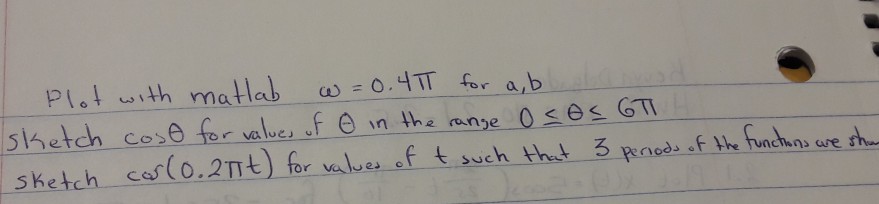 Plot with matlab ω = 0.4π for a,b
Sketch cosθ for values of θ in the range 0 ≤ θ ≤ 6π
Sketch cos(0.2πt) for values of t such that 3 periods of the functions are